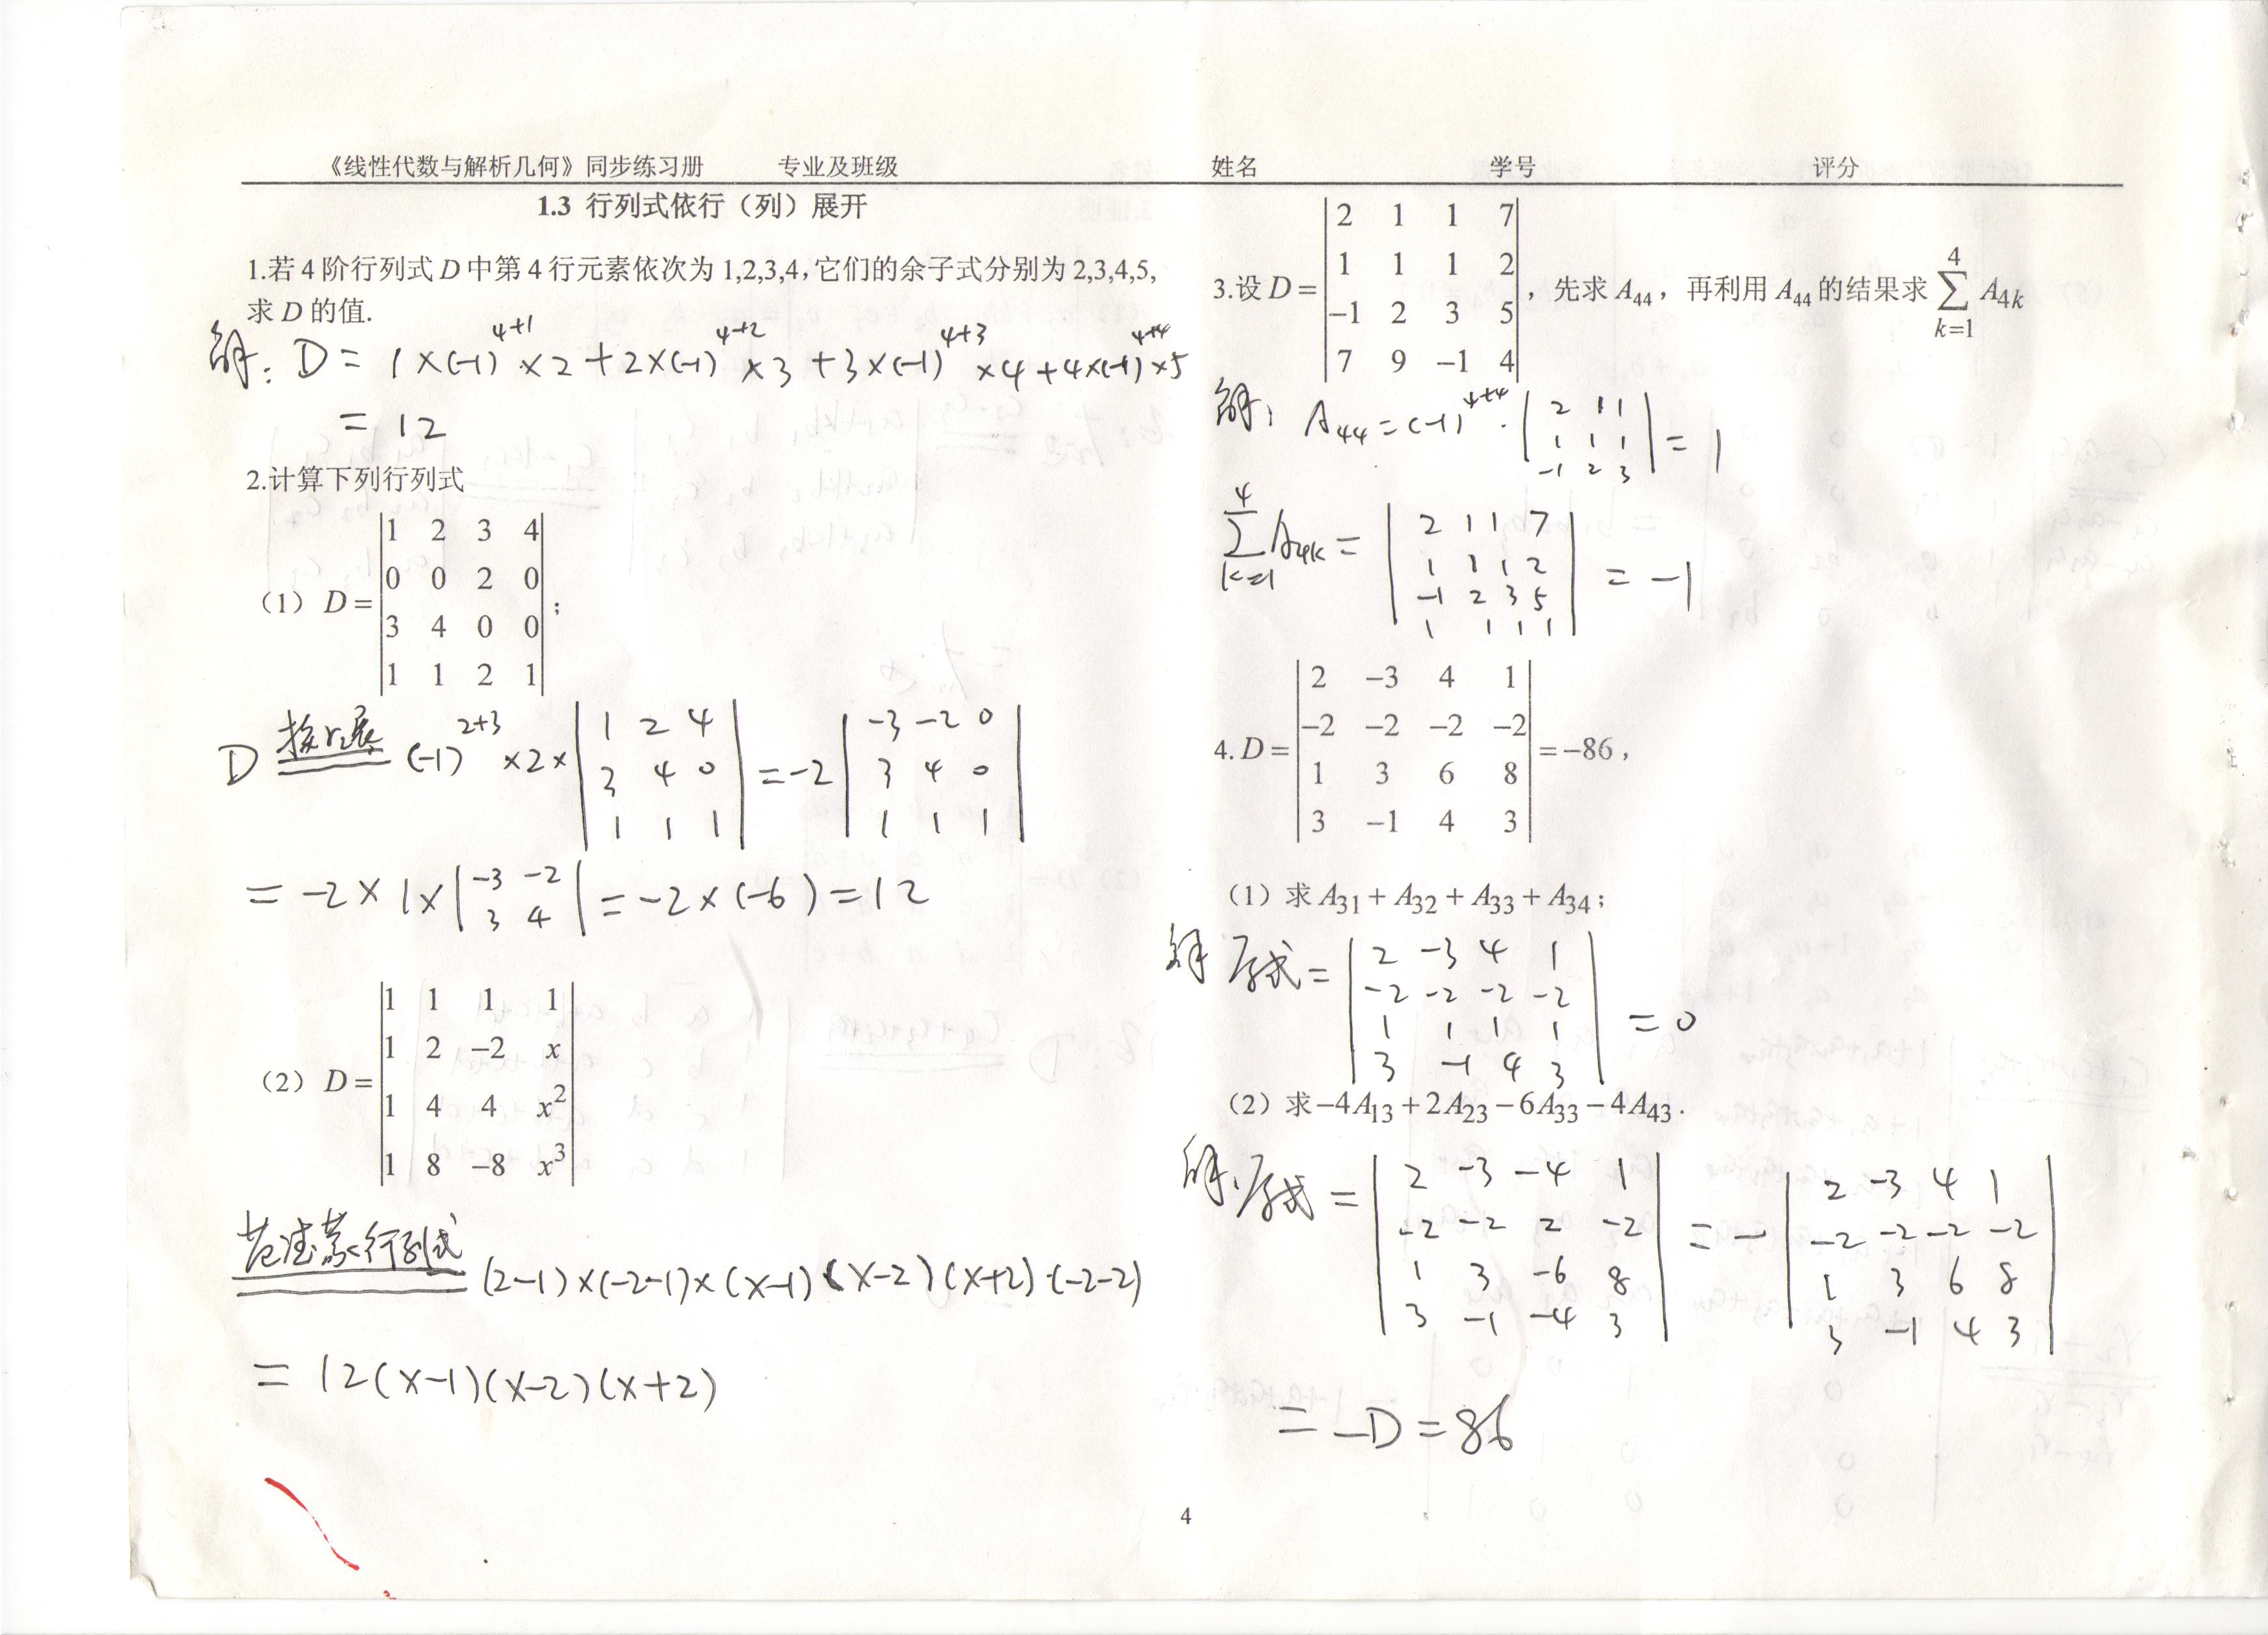 《线性代数与解析几何》同步练习册 专业及班级 姓名 学号 评分
1.3 行列式依行（列）展开
1.若 4 阶行列式 D 中第 4 行元素依次为 1,2,3,4，它们的余子式分别为 2,3,4,5,
求 D 的值.
解：D = 1×(-1)^{4+1}×2+2×(-1)^{4+2}×3+3×(-1)^{4+3}×4+4×(-1)^{4+4}×5
= 12
2.计算下列行列式
（1） D=
1 2 3 4
0 0 2 0
3 4 0 0
1 1 2 1
;
D 按r₂展 (-1)^{2+3}×2×
1 2 4
3 4 0
1 1 1
=-2
-3 -2 0
3 4 0
1 1 1
= -2×1×
-3 -2
3 4
=-2×(-6)=12
（2） D=
1 1 1 1
1 2 −2 x
1 4 4 x²
1 8 −8 x³
范德蒙行列式 (2-1)×(-2-1)×(x-1)(x-2)(x+2)·(-2-2)
= 12(x-1)(x-2)(x+2)
3.设 D=
2 1 1 7
1 1 1 2
−1 2 3 5
7 9 −1 4
，先求 A₄₄，再利用 A₄₄ 的结果求 ∑_{k=1}^{4} A_{4k}
解：A₄₄=(-1)^{4+4}·
2 1 1
1 1 1
-1 2 3
= 1
∑_{k=1}^{4} A_{4k} =
2 1 1 7
1 1 1 2
-1 2 3 5
1 1 1 1
= -1
4. D=
2 −3 4 1
−2 −2 −2 −2
1 3 6 8
3 −1 4 3
=−86,
（1）求 A₃₁+A₃₂+A₃₃+A₃₄;
解 原式=
2 -3 4 1
-2 -2 -2 -2
1 1 1 1
3 -1 4 3
= 0
（2）求−4A₁₃+2A₂₃−6A₃₃−4A₄₃.
解.原式 =
2 -3 -4 1
-2 -2 2 -2
1 3 -6 8
3 -1 -4 3
= -
2 -3 4 1
-2 -2 -2 -2
1 3 6 8
3 -1 4 3
= -D=86
4